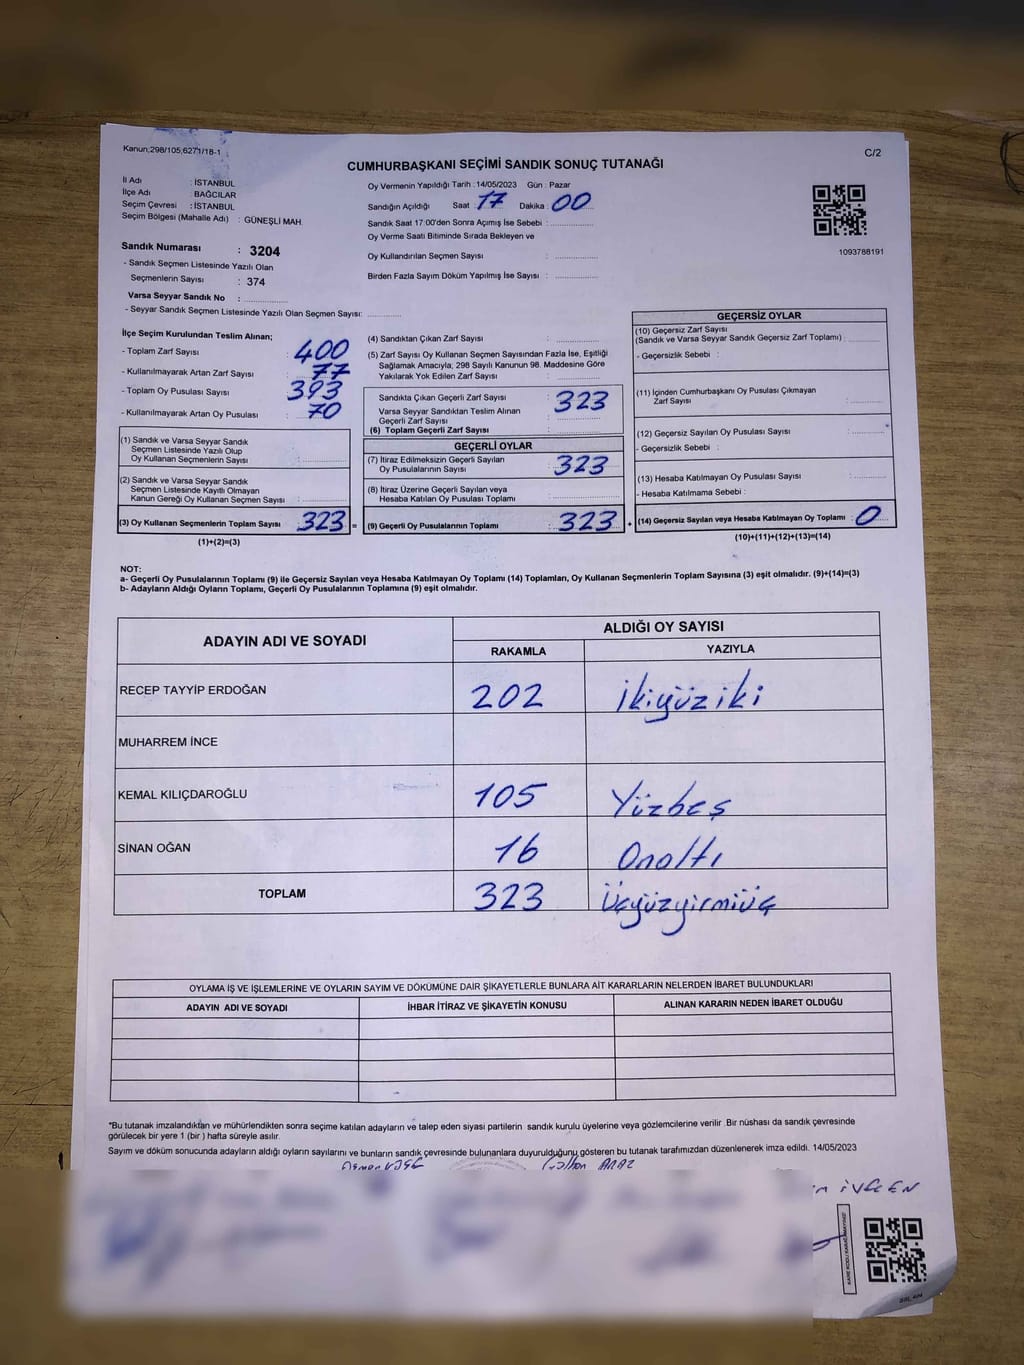 Kanun;298/105,6271/18-1
C/2
CUMHURBAŞKANI SEÇİMİ SANDIK SONUÇ TUTANAĞI
İl Adı : İSTANBUL
İlçe Adı : BAĞCILAR
Seçim Çevresi : İSTANBUL
Seçim Bölgesi (Mahalle Adı) : GÜNEŞLİ MAH.
Oy Vermenin Yapıldığı Tarih : 14/05/2023 Gün : Pazar
Sandığın Açıldığı Saat : 17 Dakika 00
Sandık Saat 17:00'den Sonra Açımış İse Sebebi :
Oy Verme Saati Bitiminde Sırada Bekleyen ve
Oy Kullandırılan Seçmen Sayısı :
Birden Fazla Sayım Döküm Yapılmış İse Sayısı :
1093788191
Sandık Numarası : 3204
- Sandık Seçmen Listesinde Yazılı Olan
Seçmenlerin Sayısı : 374
Varsa Seyyar Sandık No :
- Seyyar Sandık Seçmen Listesinde Yazılı Olan Seçmen Sayısı:
İlçe Seçim Kurulundan Teslim Alınan;
- Toplam Zarf Sayısı : 400
- Kullanılmayarak Artan Zarf Sayısı : 77
- Toplam Oy Pusulası Sayısı : 393
- Kullanılmayarak Artan Oy Pusulası : 70
(1) Sandık ve Varsa Seyyar Sandık
Seçmen Listesinde Yazılı Olup
Oy Kullanan Seçmenlerin Sayısı :
(2) Sandık ve Varsa Seyyar Sandık
Seçmen Listesinde Kayıtlı Olmayan
Kanun Gereği Oy Kullanan Seçmen Sayısı :
(3) Oy Kullanan Seçmenlerin Toplam Sayısı : 323 =
(1)+(2)=(3)
(4) Sandıktan Çıkan Zarf Sayısı :
(5) Zarf Sayısı Oy Kullanan Seçmen Sayısından Fazla İse, Eşitliği
Sağlamak Amacıyla, 298 Sayılı Kanunun 98. Maddesine Göre
Yakılarak Yok Edilen Zarf Sayısı :
Sandıkta Çıkan Geçerli Zarf Sayısı : 323
Varsa Seyyar Sandıktan Teslim Alınan
Geçerli Zarf Sayısı :
(6) Toplam Geçerli Zarf Sayısı :
GEÇERLİ OYLAR
(7) İtiraz Edilmeksizin Geçerli Sayılan
Oy Pusulalarının Sayısı : 323
(8) İtiraz Üzerine Geçerli Sayılan veya
Hesaba Katılan Oy Pusulası Toplamı :
(9) Geçerli Oy Pusulalarının Toplamı : 323 +
GEÇERSİZ OYLAR
(10) Geçersiz Zarf Sayısı
(Sandık ve Varsa Seyyar Sandık Geçersiz Zarf Toplamı) :
- Geçersizlik Sebebi :
(11) İçinden Cumhurbaşkanı Oy Pusulası Çıkmayan
Zarf Sayısı :
(12) Geçersiz Sayılan Oy Pusulası Sayısı :
- Geçersizlik Sebebi :
(13) Hesaba Katılmayan Oy Pusulası Sayısı :
- Hesaba Katılmama Sebebi :
(14) Geçersiz Sayılan veya Hesaba Katılmayan Oy Toplamı : 0
(10)+(11)+(12)+(13)=(14)
NOT:
a- Geçerli Oy Pusulalarının Toplamı (9) ile Geçersiz Sayılan veya Hesaba Katılmayan Oy Toplamı (14) Toplamları, Oy Kullanan Seçmenlerin Toplam Sayısına (3) eşit olmalıdır. (9)+(14)=(3)
b- Adayların Aldığı Oyların Toplamı, Geçerli Oy Pusulalarının Toplamına (9) eşit olmalıdır.
ADAYIN ADI VE SOYADI
ALDIĞI OY SAYISI
RAKAMLA YAZIYLA
RECEP TAYYİP ERDOĞAN 202 İkiyüziki
MUHARREM İNCE
KEMAL KILIÇDAROĞLU 105 Yüzbeş
SİNAN OĞAN 16 Onaltı
TOPLAM 323 Üçyüzyirmiüç
OYLAMA İŞ VE İŞLEMLERİNE VE OYLARIN SAYIM VE DÖKÜMÜNE DAİR ŞİKAYETLERLE BUNLARA AİT KARARLARIN NELERDEN İBARET BULUNDUKLARI
ADAYIN ADI VE SOYADI İHBAR İTİRAZ VE ŞİKAYETİN KONUSU ALINAN KARARIN NEDEN İBARET OLDUĞU
*Bu tutanak imzalandıktan ve mühürlendikten sonra seçime katılan adayların ve talep eden siyasi partilerin sandık kurulu üyelerine veya gözlemcilerine verilir. Bir nüshası da sandık çevresinde
görülecek bir yere 1 (bir ) hafta süreyle asılır.
Sayım ve döküm sonucunda adayların aldığı oyların sayılarını ve bunların sandık çevresinde bulunanlara duyurulduğunu gösteren bu tutanak tarafımızdan düzenlenerek imza edildi. 14/05/2023